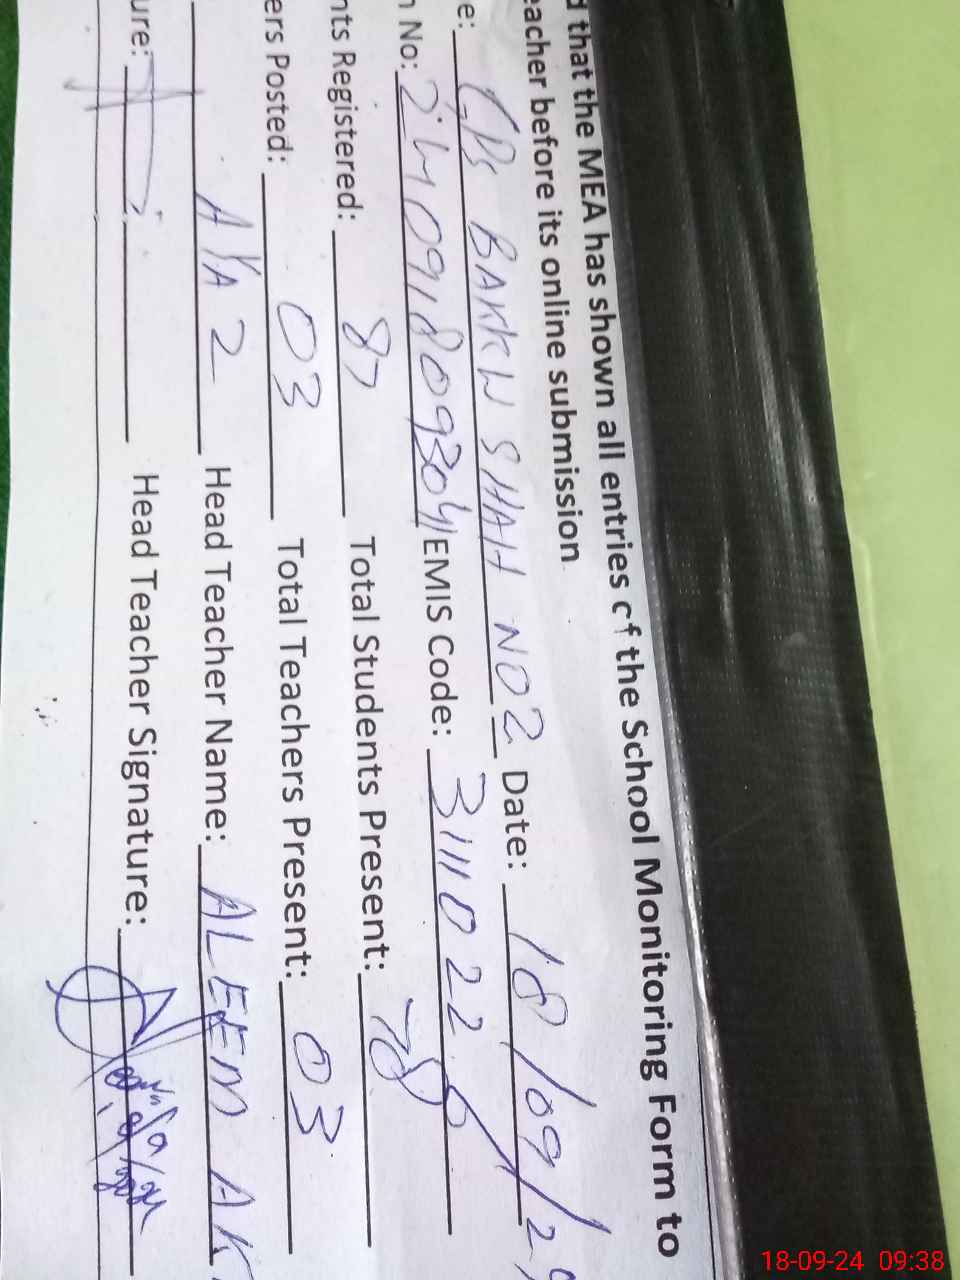 d that the MEA has shown all entries of the School Monitoring Form to
eacher before its online submission
e: GPS BAKKW SHAH NO2 Date: 18/09/2
n No: EMIS Code: 3111022
nts Registered: 87 Total Students Present: 78
ers Posted: 03 Total Teachers Present: 03
Head Teacher Name: ALEEM AK
ure: Head Teacher Signature:
18-09-24 09:38